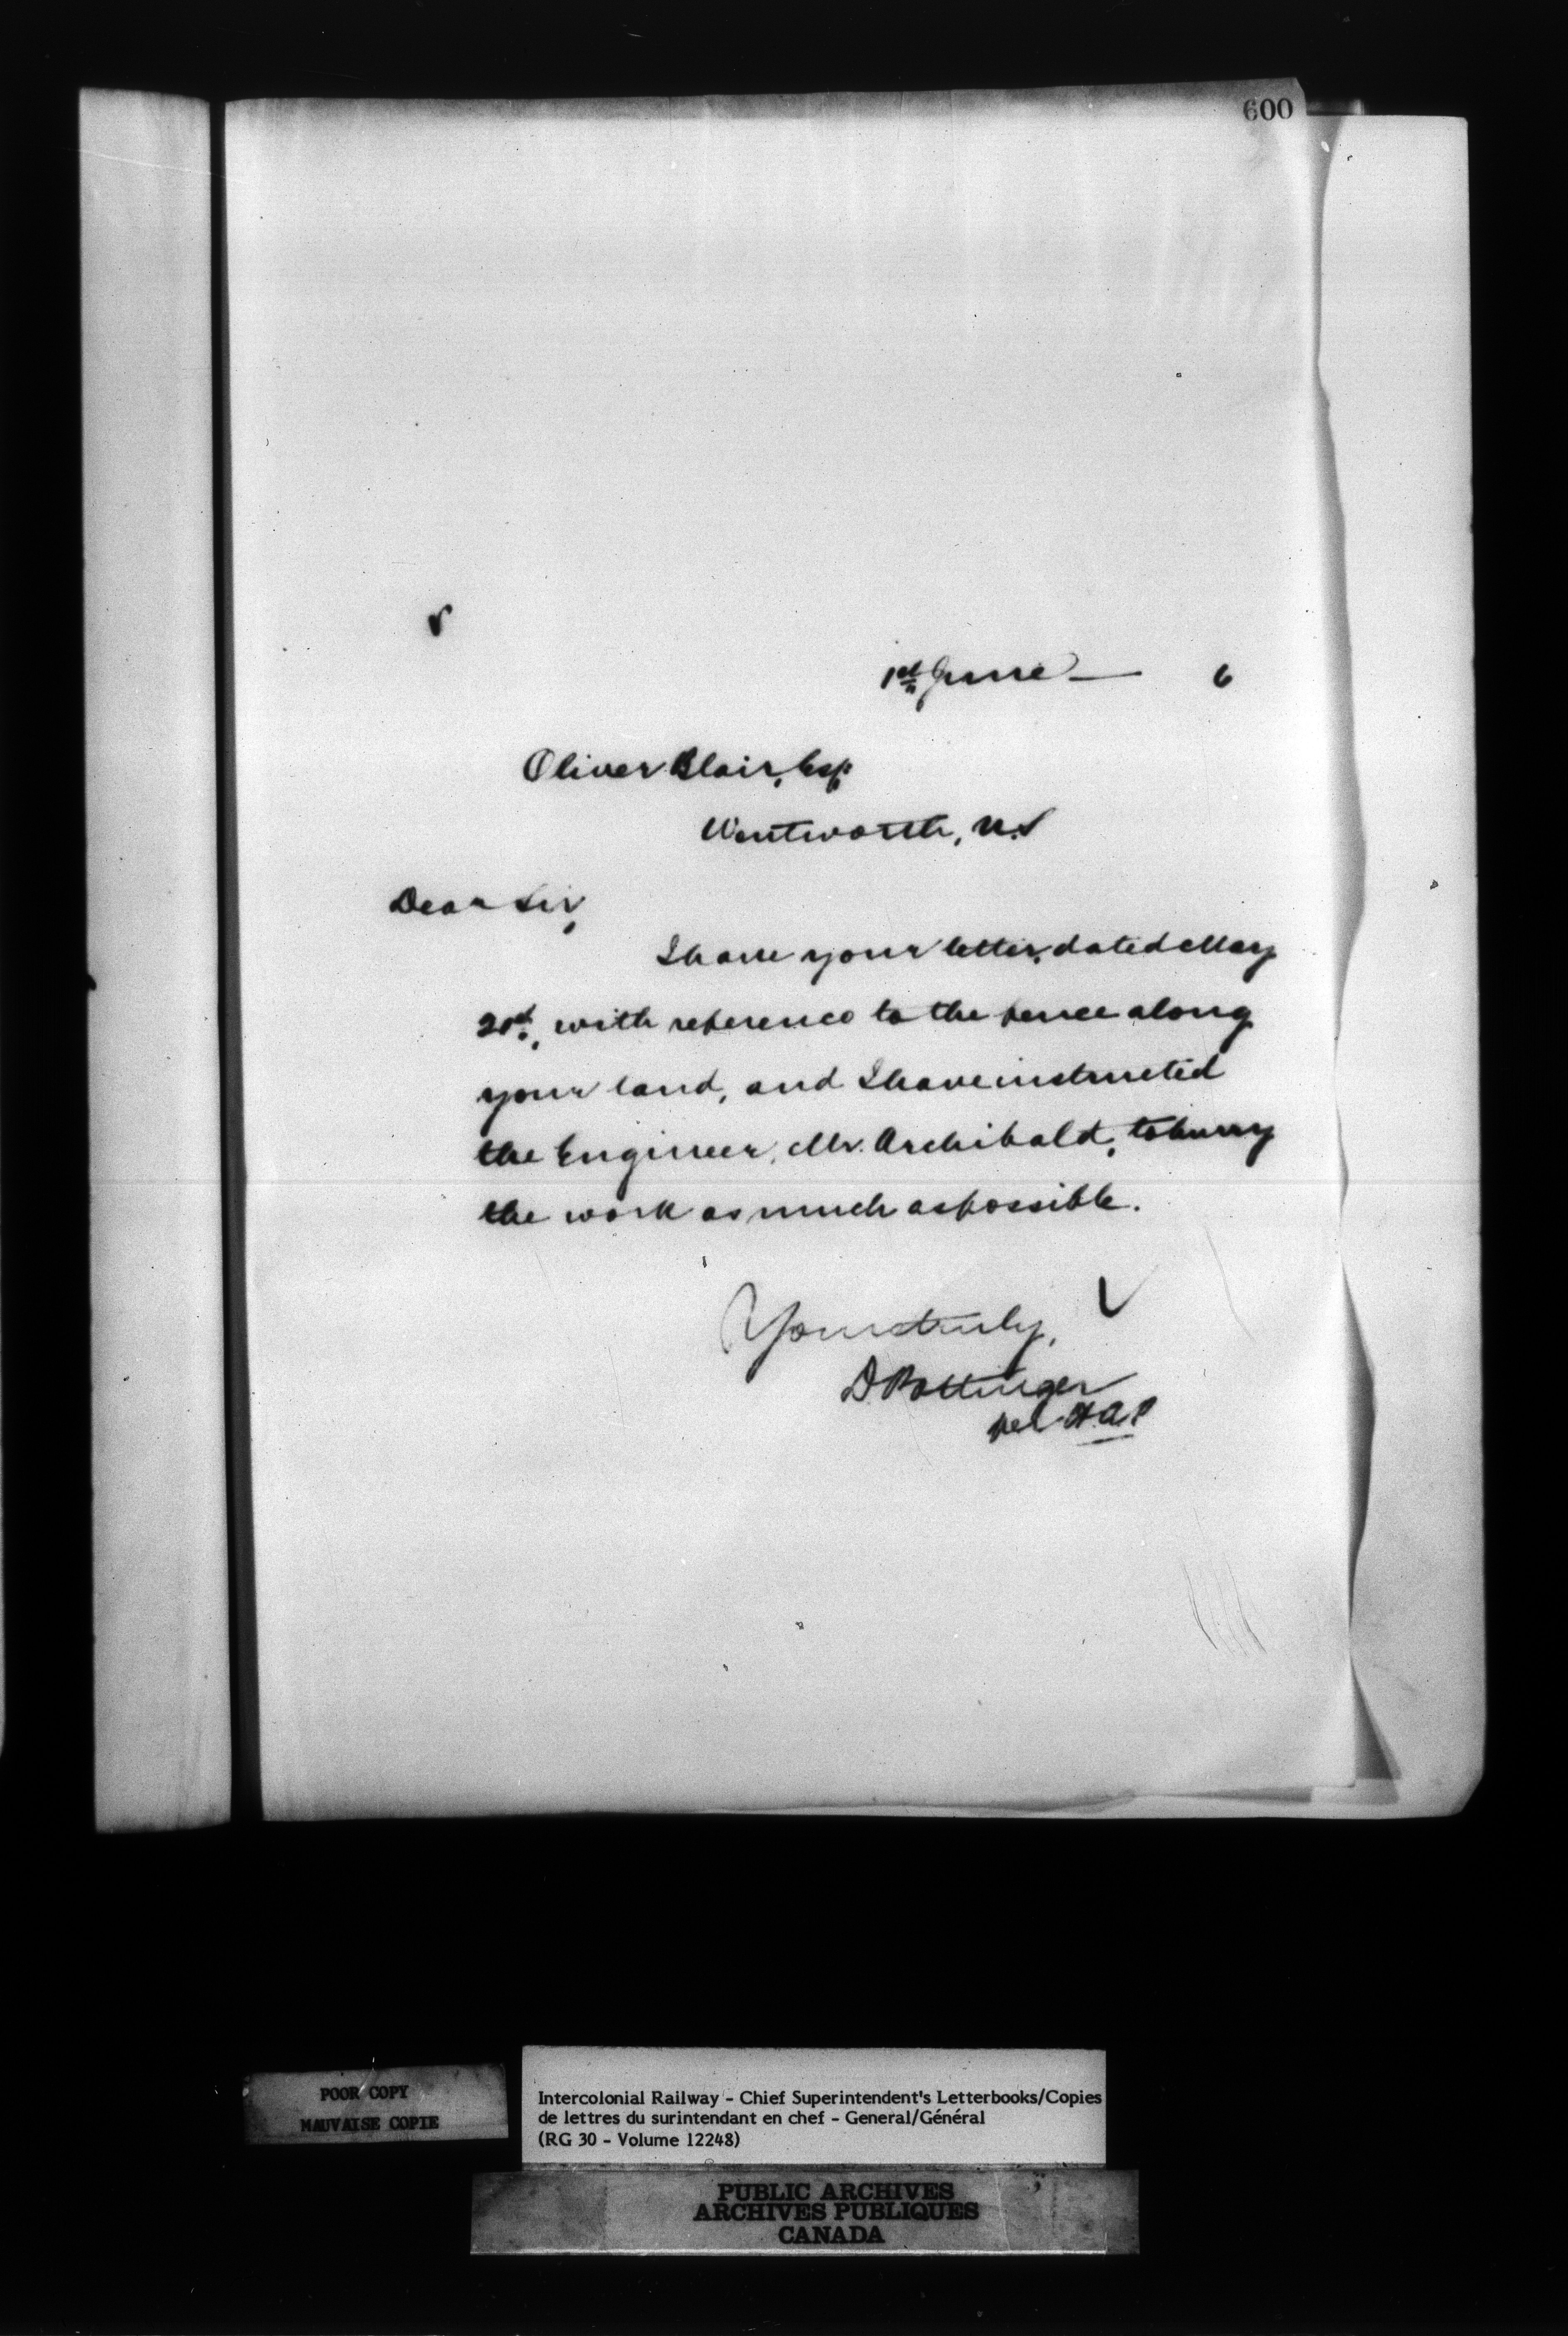 600
1st June — 6
Oliver Blair, Esq
Wentworth, N.S
Dear Sir,
I have your letter, dated May
21st, with reference to the fence along
your land, and I have instructed
the Engineer, Mr. Archibald, to hurry
the work as much as possible.
Yours truly,
D. Pottinger
per H.A.P
POOR COPY
MAUVAISE COPIE
Intercolonial Railway - Chief Superintendent's Letterbooks/Copies
de lettres du surintendant en chef - General/Général
(RG 30 - Volume 12248)
PUBLIC ARCHIVES
ARCHIVES PUBLIQUES
CANADA